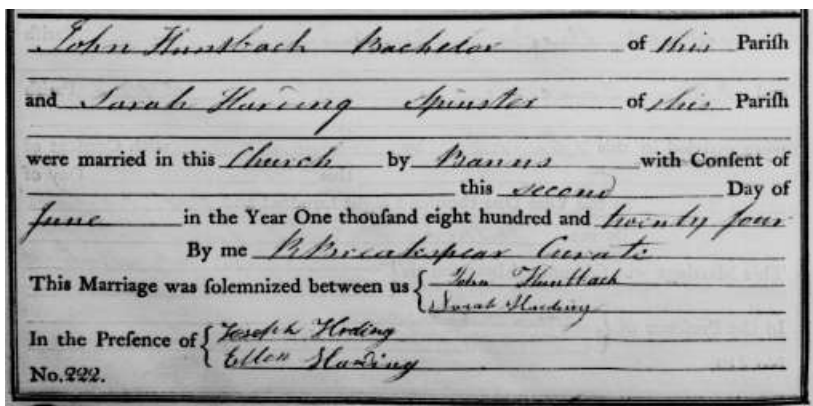 John Hunsbach Bachelor of this Pariſh
and Sarah Harding Spinster of this Pariſh
were married in this Church by Banns with Conſent of
this second Day of
June in the Year One thouſand eight hundred and twenty four
By me Breakspear Curate
This Marriage was ſolemnized between us { John Huntbach
Sarah Harding
In the Preſence of { Joseph Hrding
Ellen Harding
No. 222.